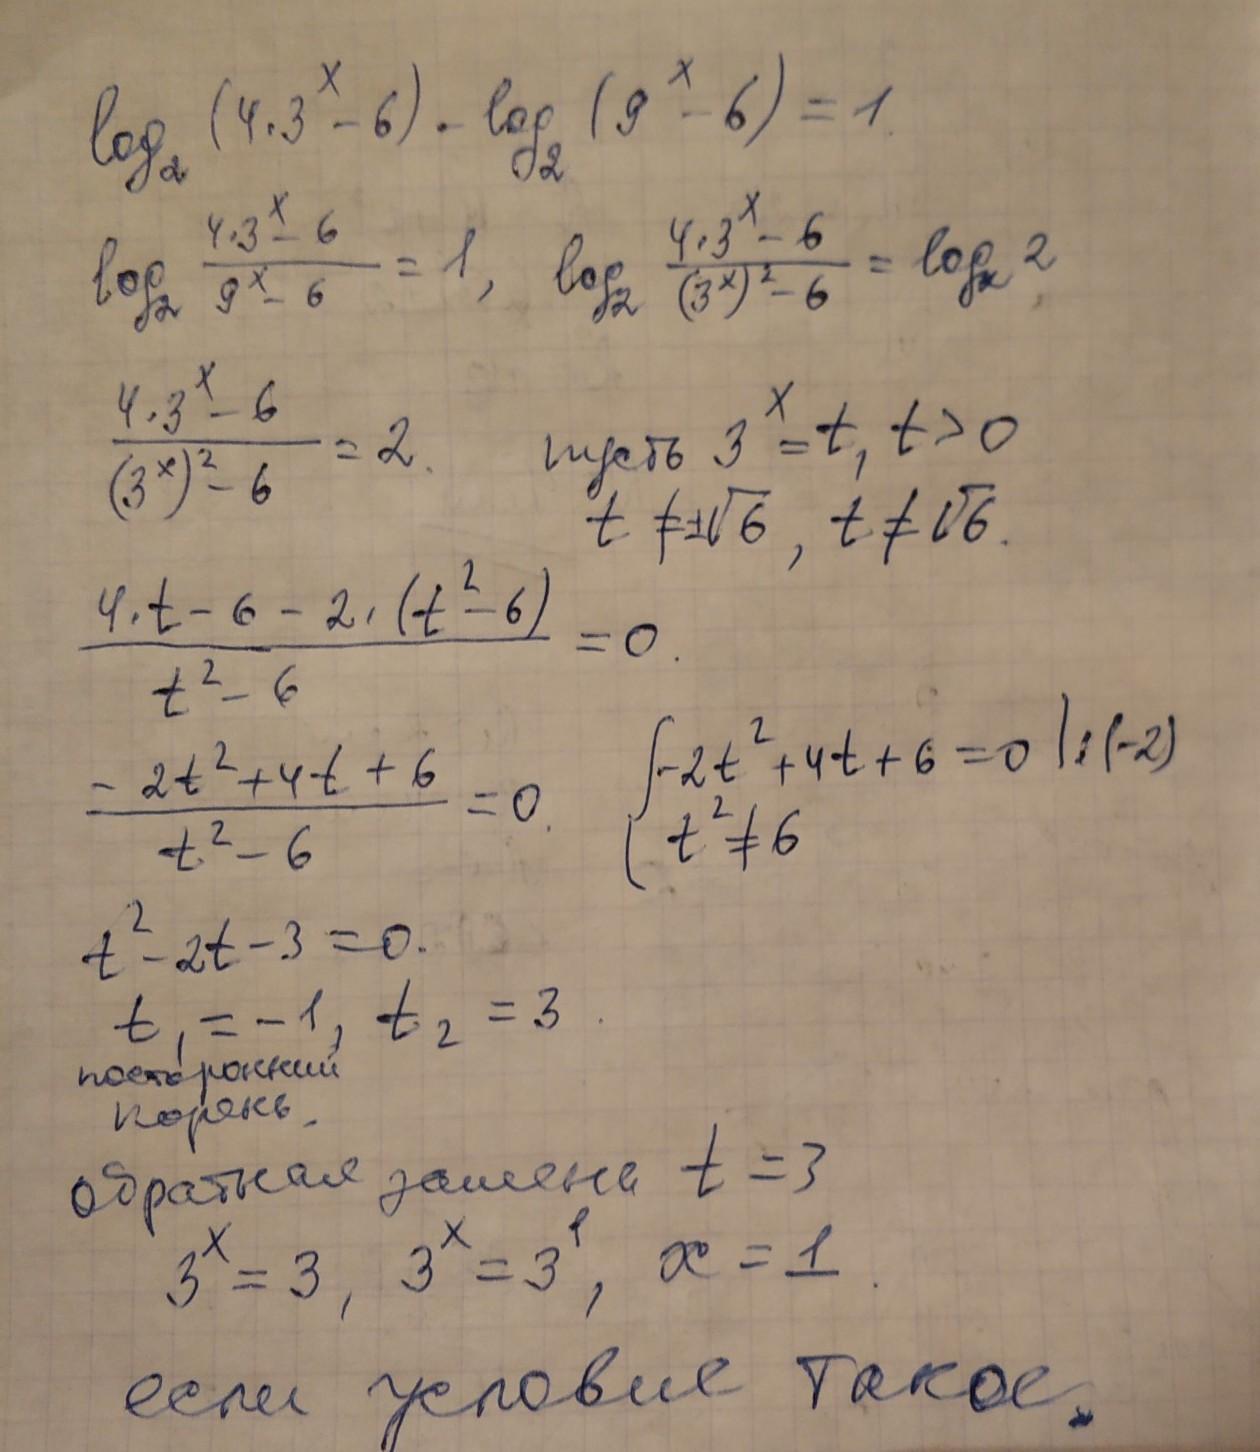 log₂ (4·3ˣ - 6) - log₂ (9ˣ - 6) = 1.
log₂ (4·3ˣ - 6)/(9ˣ - 6) = 1, log₂ (4·3ˣ - 6)/((3ˣ)² - 6) = log₂ 2
(4·3ˣ - 6)/((3ˣ)² - 6) = 2. пусть 3ˣ = t, t > 0
t ≠ ±√6, t ≠ √6.
(4·t - 6 - 2·(t² - 6))/(t² - 6) = 0.
(-2t² + 4t + 6)/(t² - 6) = 0. { -2t² + 4t + 6 = 0 |:(-2)
t² ≠ 6
t² - 2t - 3 = 0.
t₁ = -1, t₂ = 3.
посторонний
корень.
обратная замена t = 3
3ˣ = 3, 3ˣ = 3¹, x = 1.
если условие такое.